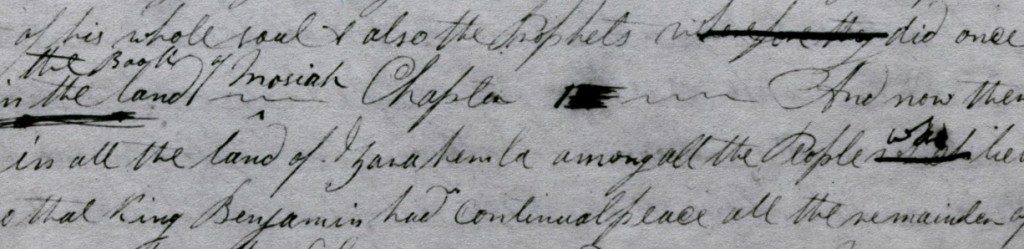 of his whole soul & also the Prophets wherefore they did once
the Book of Mosiah
in the land Chapter And now ther
in all the land of Zarahemla among all the People
o that King Benjamin had continual peace all the remainder of